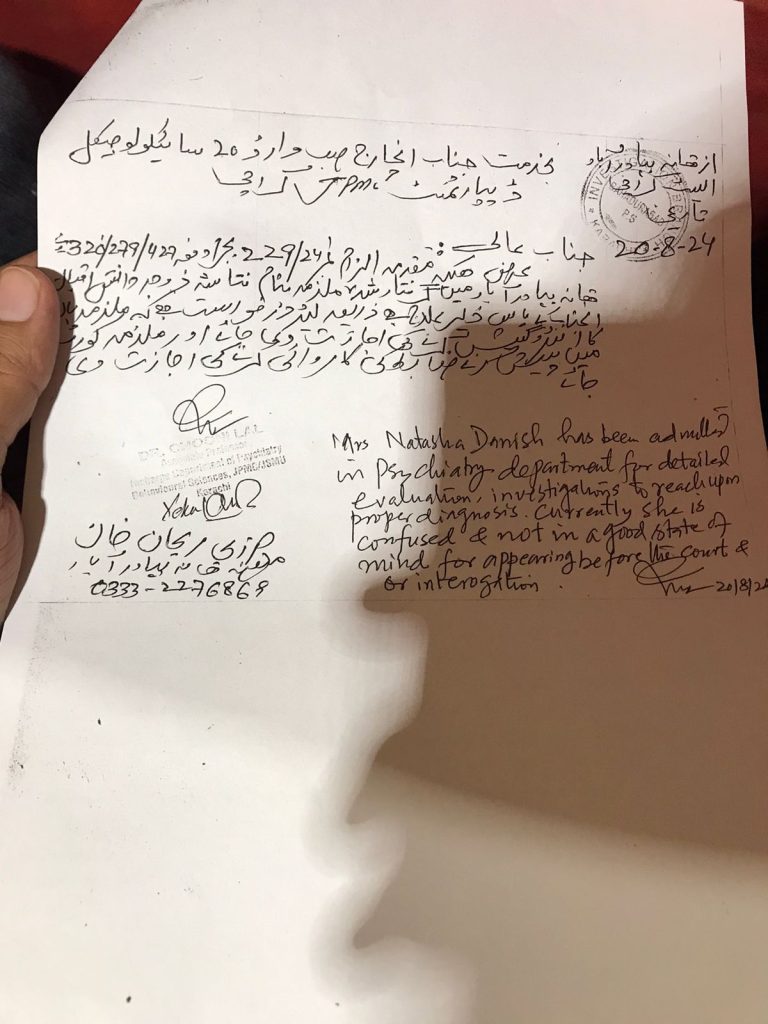 از تھانہ بہادر آباد
السٹ کراچی
تاریخ
20-8-24
INVESTIGATION
BAHADURABAD
P.S
بخدمت جناب انچارج صب وارڈ 20 سائیکولوجیکل
ڈیپارٹمنٹ JPMC کراچی
جناب عالی :
عرض ھیکہ مقدمہ الزام نمبر 229/24 بجرم دفعہ 320/279/427
تھانہ بہادر آباد میں گرفتار شدہ ملزمہ بنام نتاشہ زوجہ دانش اقبال
آنجناب کے پاس زیر علاج ہے ذریعہ لیٹر درخواست ہے کہ ملزمہ
کا انٹروگیشن کرنے کی اجازت دی جائے اور ملزمہ کورٹ
میں پیش کرنے ضابطہ کی کاروائی کرنے کی اجازت دی
جائے
DR. CHOONI LAL
Associate Professor
Incharge Department of Psychiatry
Behavioural Sciences, JPMC/JSMU
Karachi
Mrs Natasha Danish has been admitted
in Psychiatry department for detailed
evaluation, investigations to reach upon
proper diagnosis. Currently she is
confused & not in a good state of
mind for appearing before the court &
or interogation.
20/8/24
خان
تھانہ بہادر آباد
0333-2276869